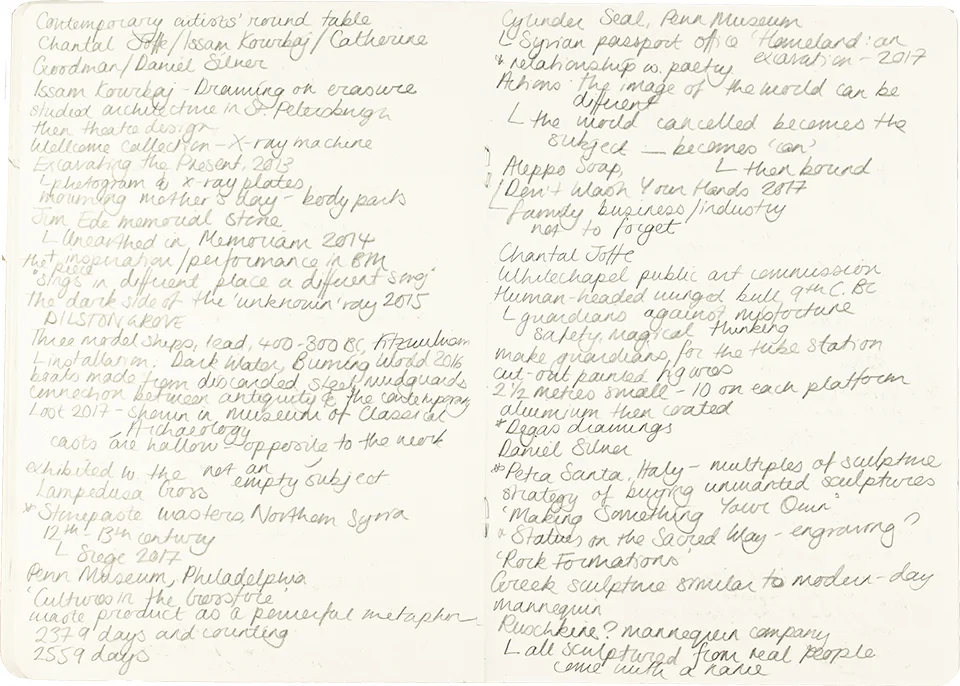 Contemporary artists' round table
Chantal Joffe/Issam Kourbaj/Catherine
Goodman/Daniel Silver
Issam Kourbaj - Drawing on erasure
studied architecture in St. Petersburgh
then theatre design
Wellcome collection - X-ray machine
Excavating the Present, 2013
L photogram & x-ray plates
mourning mother's day - body parts
Jim Ede memorial stone
L Unearthed in Memoriam 2014
that inspiration/performance in BM
piece
"sings in different place a different song"
The dark side of the 'unknown' ray 2015
DILSTON GROVE
Three model ships, lead, 400-300 BC, Fitzwilliam
L installation. Dark Water, Burning World 2016
boats made from discarded steel mudguards
connection between antiquity & the contemporary
Lost 2017 - shown in museum of Classical
Archaeology
casts are hollow - opposite to the work
not an empty subject
exhibited w the
Lampedusa Cross
* Stonepaste wasters, Northern Syria
12th - 13th century
L Siege 2017
Penn Museum, Philadelphia
'Cultures in the Crossfire'
waste product as a powerful metaphor
2379 days and counting
2559 days
Cylinder Seal, Penn Museum
L Syrian passport office 'Homeland: an
excavation - 2017
* relationship w. poetry
the image of the world can be
different
L the world cancelled becomes the
subject — becomes 'can'
Aleppo Soap, L then bound
Don't Wash Your Hands 2017
L family business/industry
not to forget
Chantal Joffe
Whitechapel public art commission
Human-headed winged bull, 9th C. BC
L guardians against misfortune
safety, magical thinking
make guardians for the tube station
cut-out painted figures
2 1/2 metres small - 10 on each platform
aluminium then coated
* Degas drawings
Daniel Silver
* Petra Santa, Italy - multiples of sculpture
strategy of buying unwanted sculptures
'Making Something Your Own'
* Statues on the Sacred Way - engraving?
'Rock Formations'
Greek sculpture similar to modern-day
mannequin
? mannequin company
L all sculptured from real people
come with a name